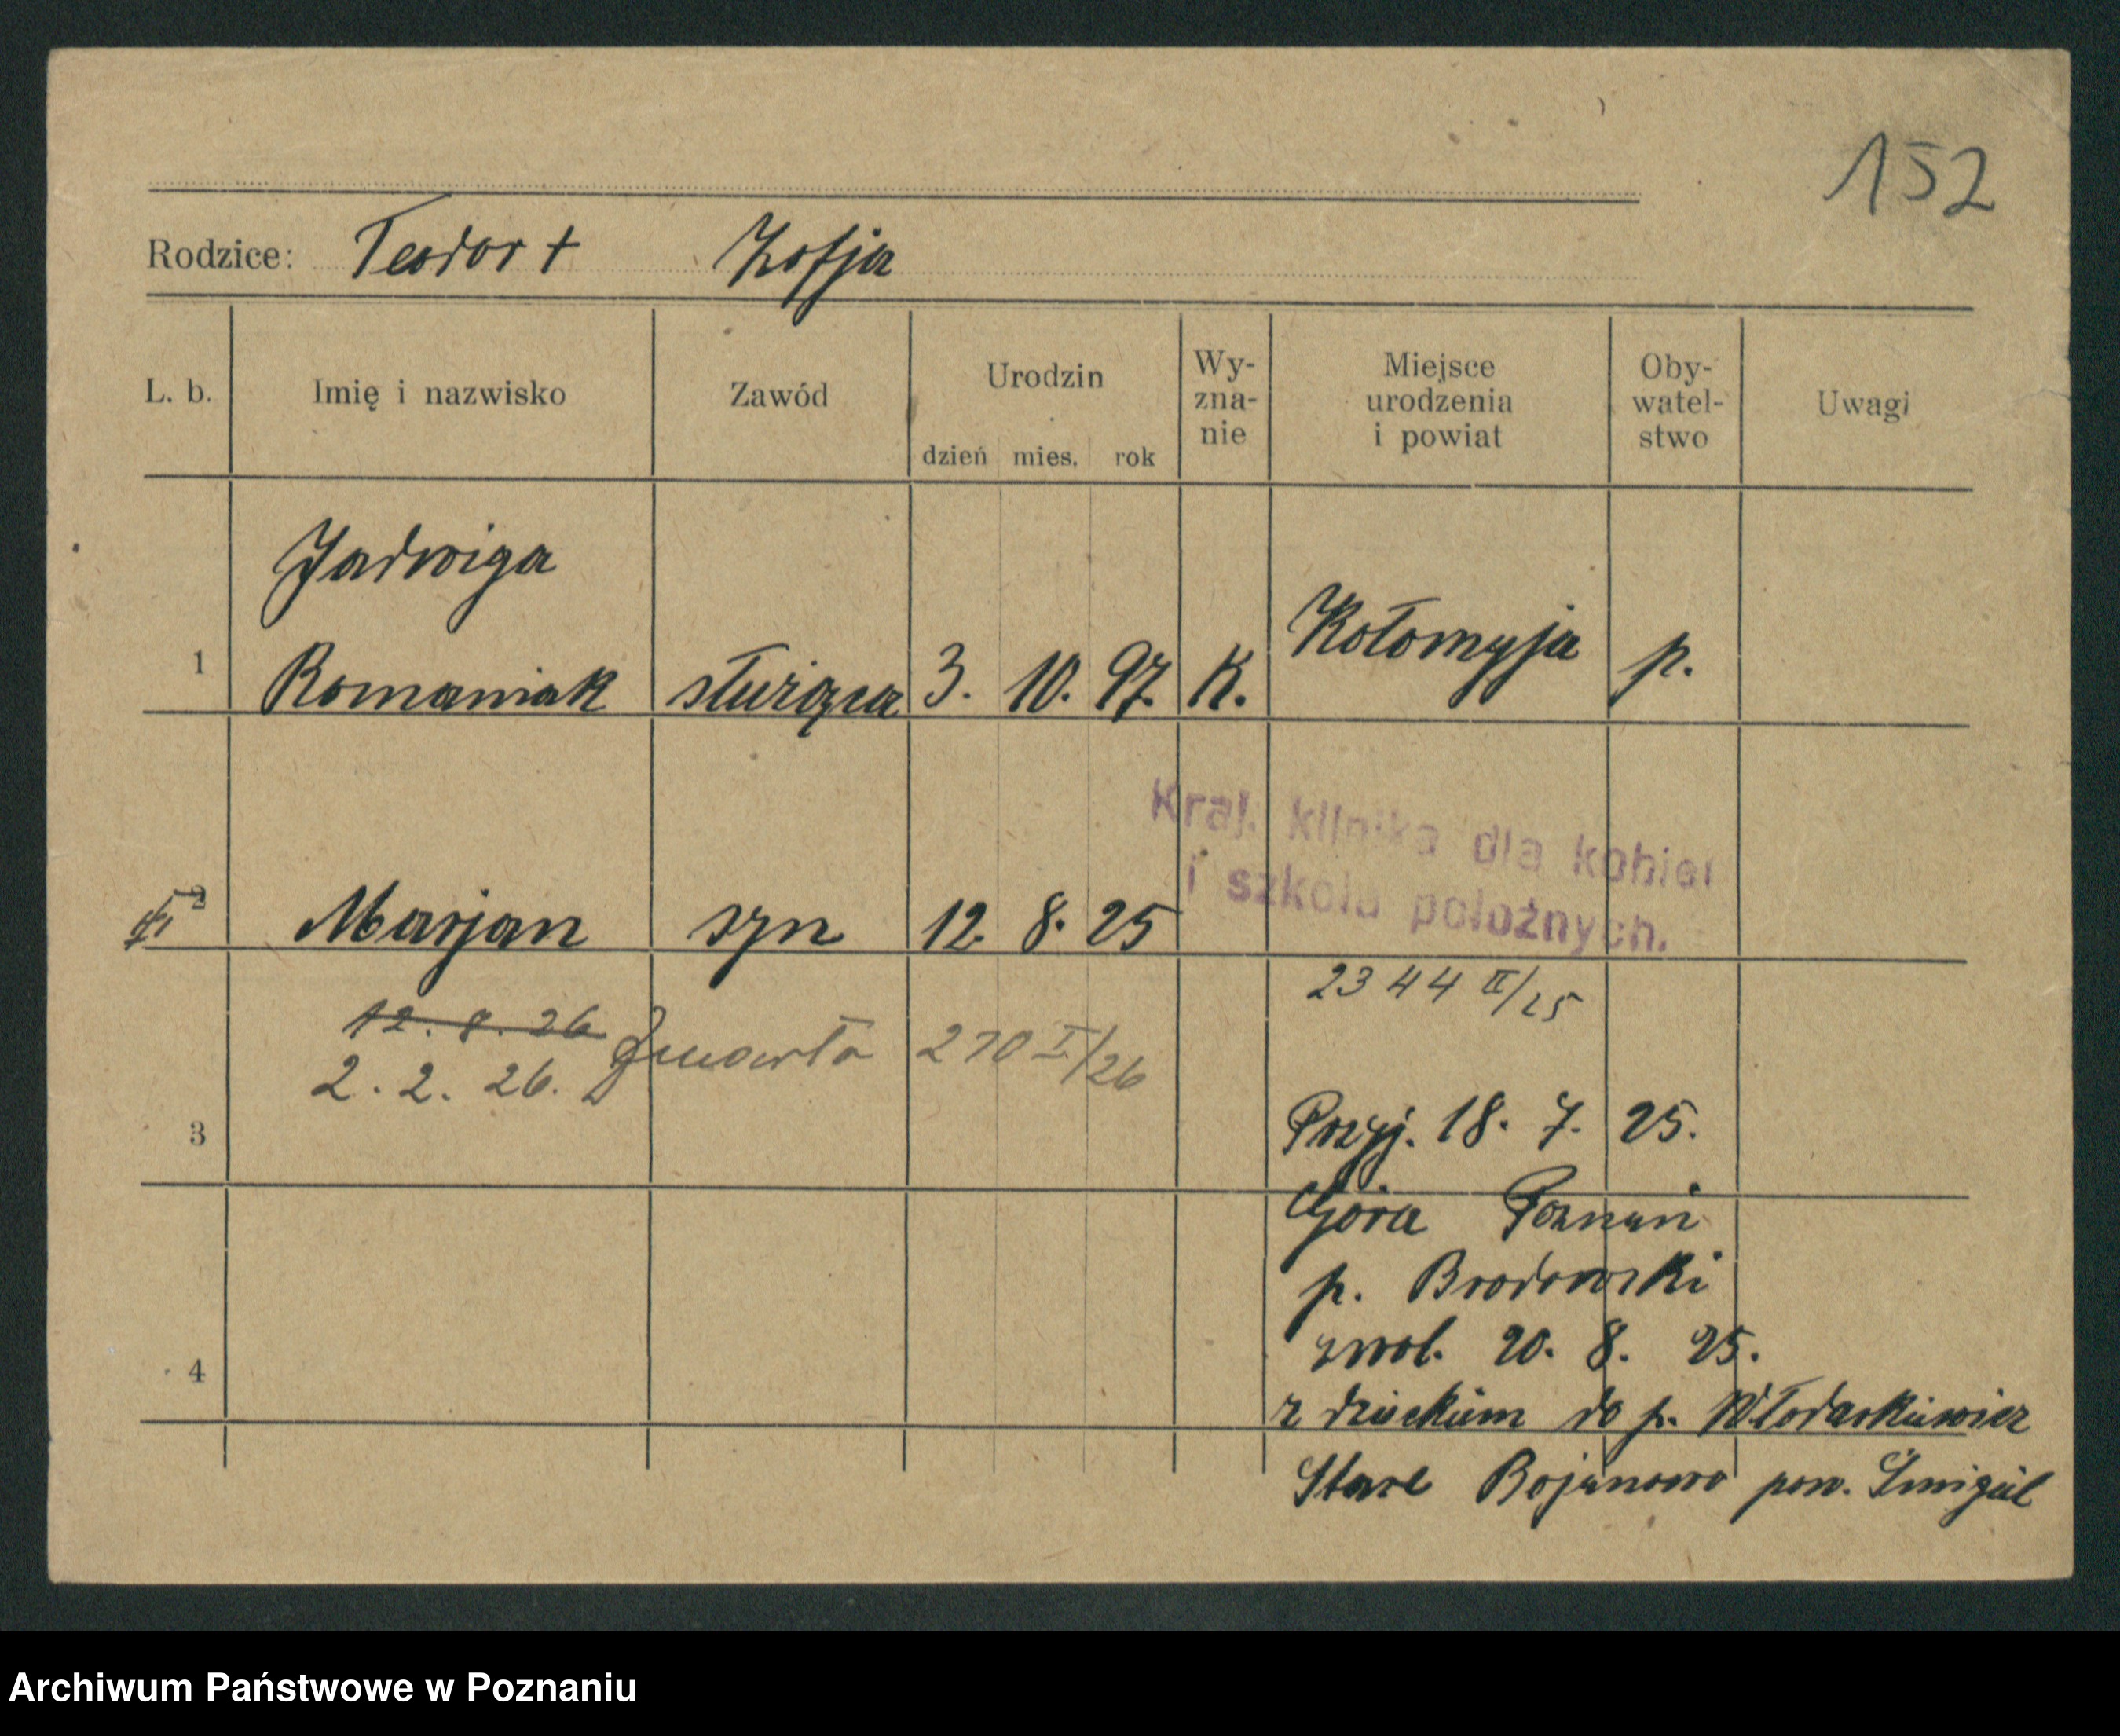 152
Rodzice: Teodor + Zofja
L. b. Imię i nazwisko Zawód Urodzin dzień mies. rok Wy-zna-nie Miejsce urodzenia i powiat Oby-watel-stwo Uwagi
Jadwiga
1 Romaniak służąca 3. 10. 97. K. Kołomyja p.
Kraj. klinika dla kobiet
i szkoła położnych.
2 Marjan syn 12. 8. 25
2344 II/25
12. 8. 26
2. 2. 26. Zmarła 270 I/26
3
Przyj. 18. 7. 25.
Góra Poznań
p. Brodowski
zwol. 20. 8. 25.
4
z dzieckiem do p. Włodarkiewicz
Stare Bojanowo pow. Śmigiel
Archiwum Państwowe w Poznaniu